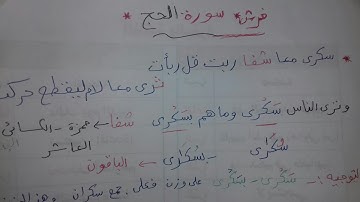 * فرش سورة الحج *
* سكرى معا شفا ربت قل ربأت
ثرى معا لام ليقطع حركت
وترى الناس سَكْرى وما هم بسَكْرى شفا ← حمزة - الكسائي
العاشر
سُكارى - بسُكارى ← الباقون
التوجيه :- سَكْرى - بسَكْرى على وزن فعلى جمع سكران وهذا